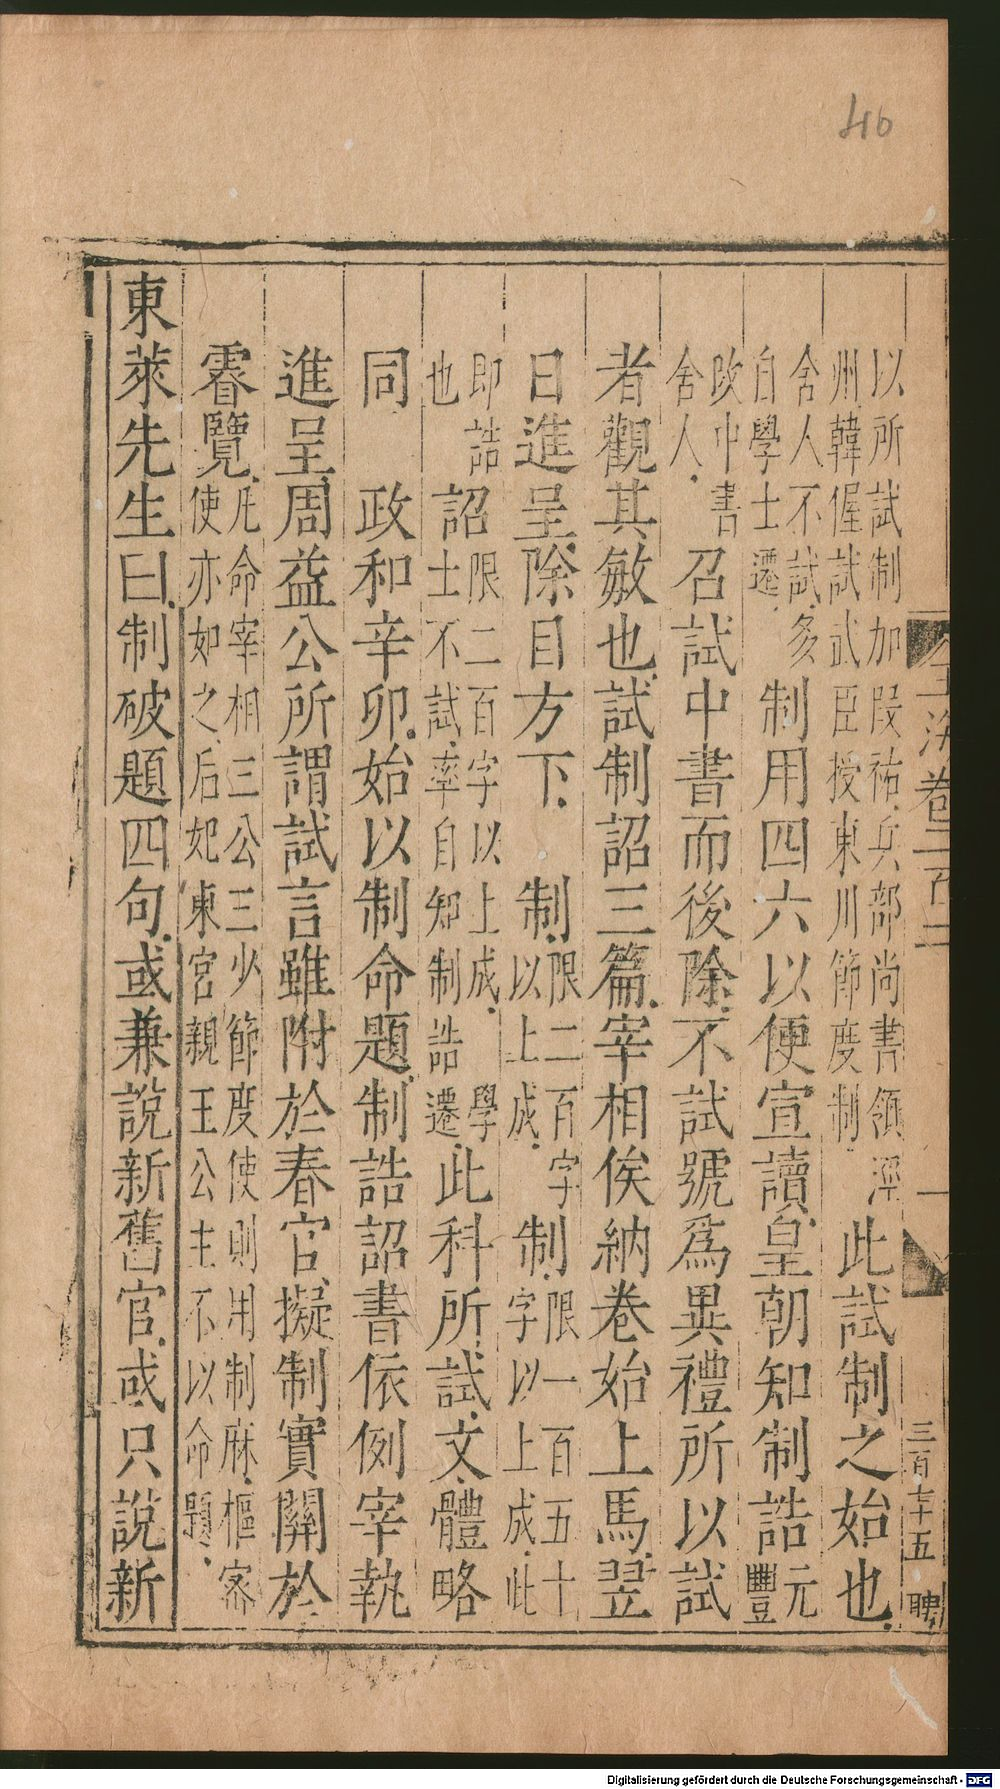 46
玉海卷二百二
一
三百七十五
聘
以所試制加段祐兵部尚書領涇
州韓偓試武臣授東川節度制
此試制之始也
舍人不試多
自學士遷
制用四六以便宣讀皇朝知制誥
元
豐
改中書
舍人
召試中書而後除不試號爲異禮所以試
者觀其敏也試制詔三篇宰相俟納卷始上馬翌
日進呈除目方下
制
限二百字
以上成
制
限一百五十
字以上成此
即誥
也
詔
限二百字以上成
士不試率自知制誥遷
學
此科所試文體略
同
政和辛卯始以制命題制誥詔書依例宰執
進呈周益公所謂試言雖附於春官擬制實關於
睿覽
凡命宰相三公三少節度使則用制麻樞密
使亦如之后妃東宮親王公主不以命題
東萊先生曰制破題四句或兼說新舊官或只說新
Digitalisierung gefördert durch die Deutsche Forschungsgemeinschaft - DFG